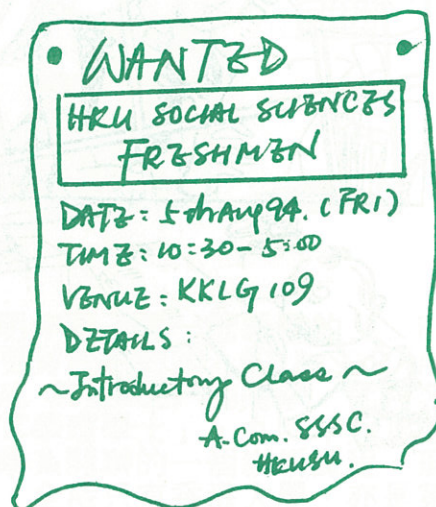 WANTED
HKU SOCIAL SCIENCES
FRESHMEN
DATE: 5th Aug 94. (FRI)
TIME: 10:30-5:00
VENUE: KKLG 109
DETAILS:
~Introductory Class~
A.Com. SSSC.
HKUSU.